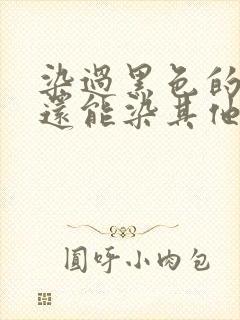 染過黑色的
還能染其他
圓呼小肉包